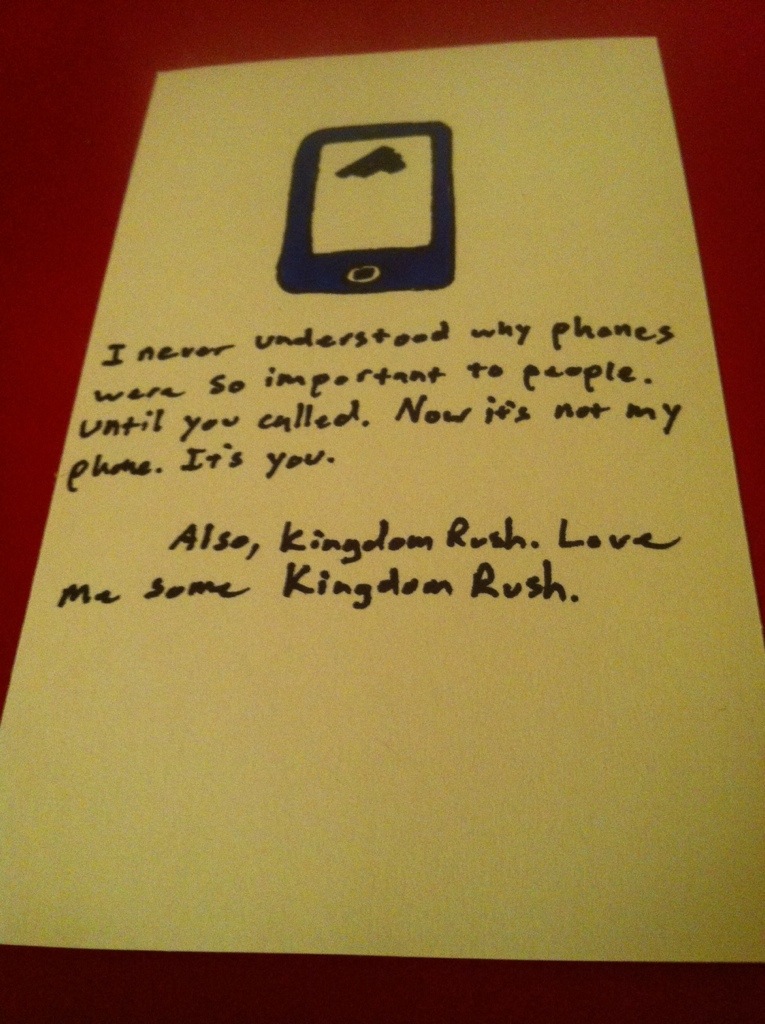 I never understood why phones
were so important to people.
Until you called. Now it's not my
phone. It's you.
Also, Kingdom Rush. Love
me some Kingdom Rush.